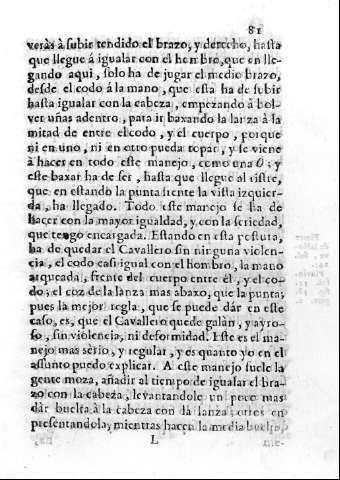 81
veràs à subir tendido el brazo, y derecho, hasta
que llegue à igualar con el hombro, que en lle-
gando aqui, solo ha de jugar el medio brazo,
desde el codo à la mano, que esta ha de subir
hasta igualar con la cabeza, empezando à bol-
ver uñas adentro, para ir baxando la lanza à la
mitad de entre el codo, y el cuerpo, porque
ni en uno, ni en otro pueda topar, y se viene
à hacer en todo este manejo, como una O; y
este baxar ha de ser, hasta que llegue al ristre,
que en estando la punta frente la vista izquier-
da, ha llegado. Todo este manejo se ha de
hacer con la mayor igualdad, y con la seriedad,
que tengo encargada. Estando en esta postura,
ha de quedar el Cavallero sin ninguna violen-
cia, el codo casi igual con el hombro, la mano
arqueada, frente del cuerpo entre èl, y el co-
do; el coz de la lanza mas abaxo, que la punta;
pues la mejor regla, que se puede dàr en este
caso, es, que el Cavallero quede galàn, y ayro-
so, sin violencia, ni deformidad. Este es el ma-
nejo mas serio, y regular, y es quanto yo en el
assunto puedo explicar. A este manejo suele la
gente moza, añadir al tiempo de igualar el bra-
zo con la cabeza, levantandole un poco mas
dàr buelta à la cabeza con la lanza; otros en
presentandola, mientras hacen la media buelta,
L